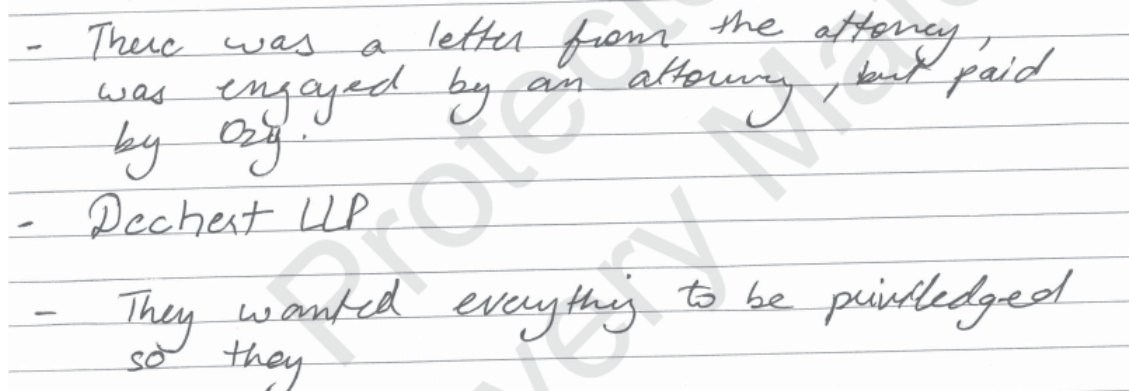 - There was a letter from the attorney,
was engaged by an attorney, but paid
by Ozy.
- Dechert LLP
- They wanted everything to be priviledged
so they
Protec
very Ma